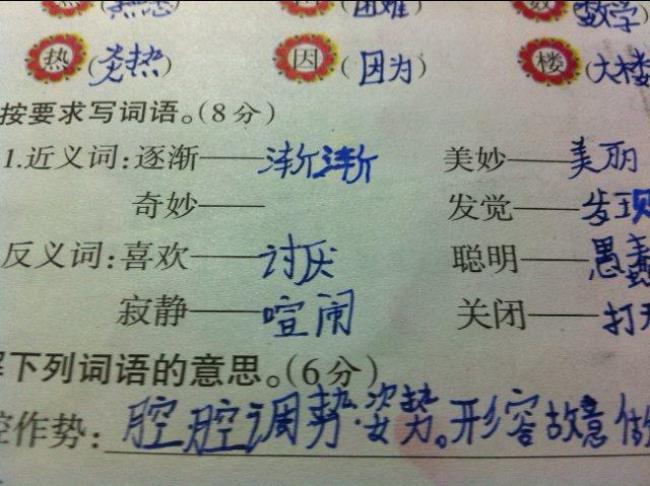 (困难) 数 (数学)
热 (炎热) 因 (因为) 楼 (大楼
按要求写词语。(8分)
1.近义词:逐渐——渐渐 美妙——美丽
奇妙—— 发觉——发现
反义词:喜欢——讨厌 聪明——愚蠢
寂静——喧闹 关闭——打开
解下列词语的意思。(6分)
腔作势:腔腔调势:姿势。形容故意做